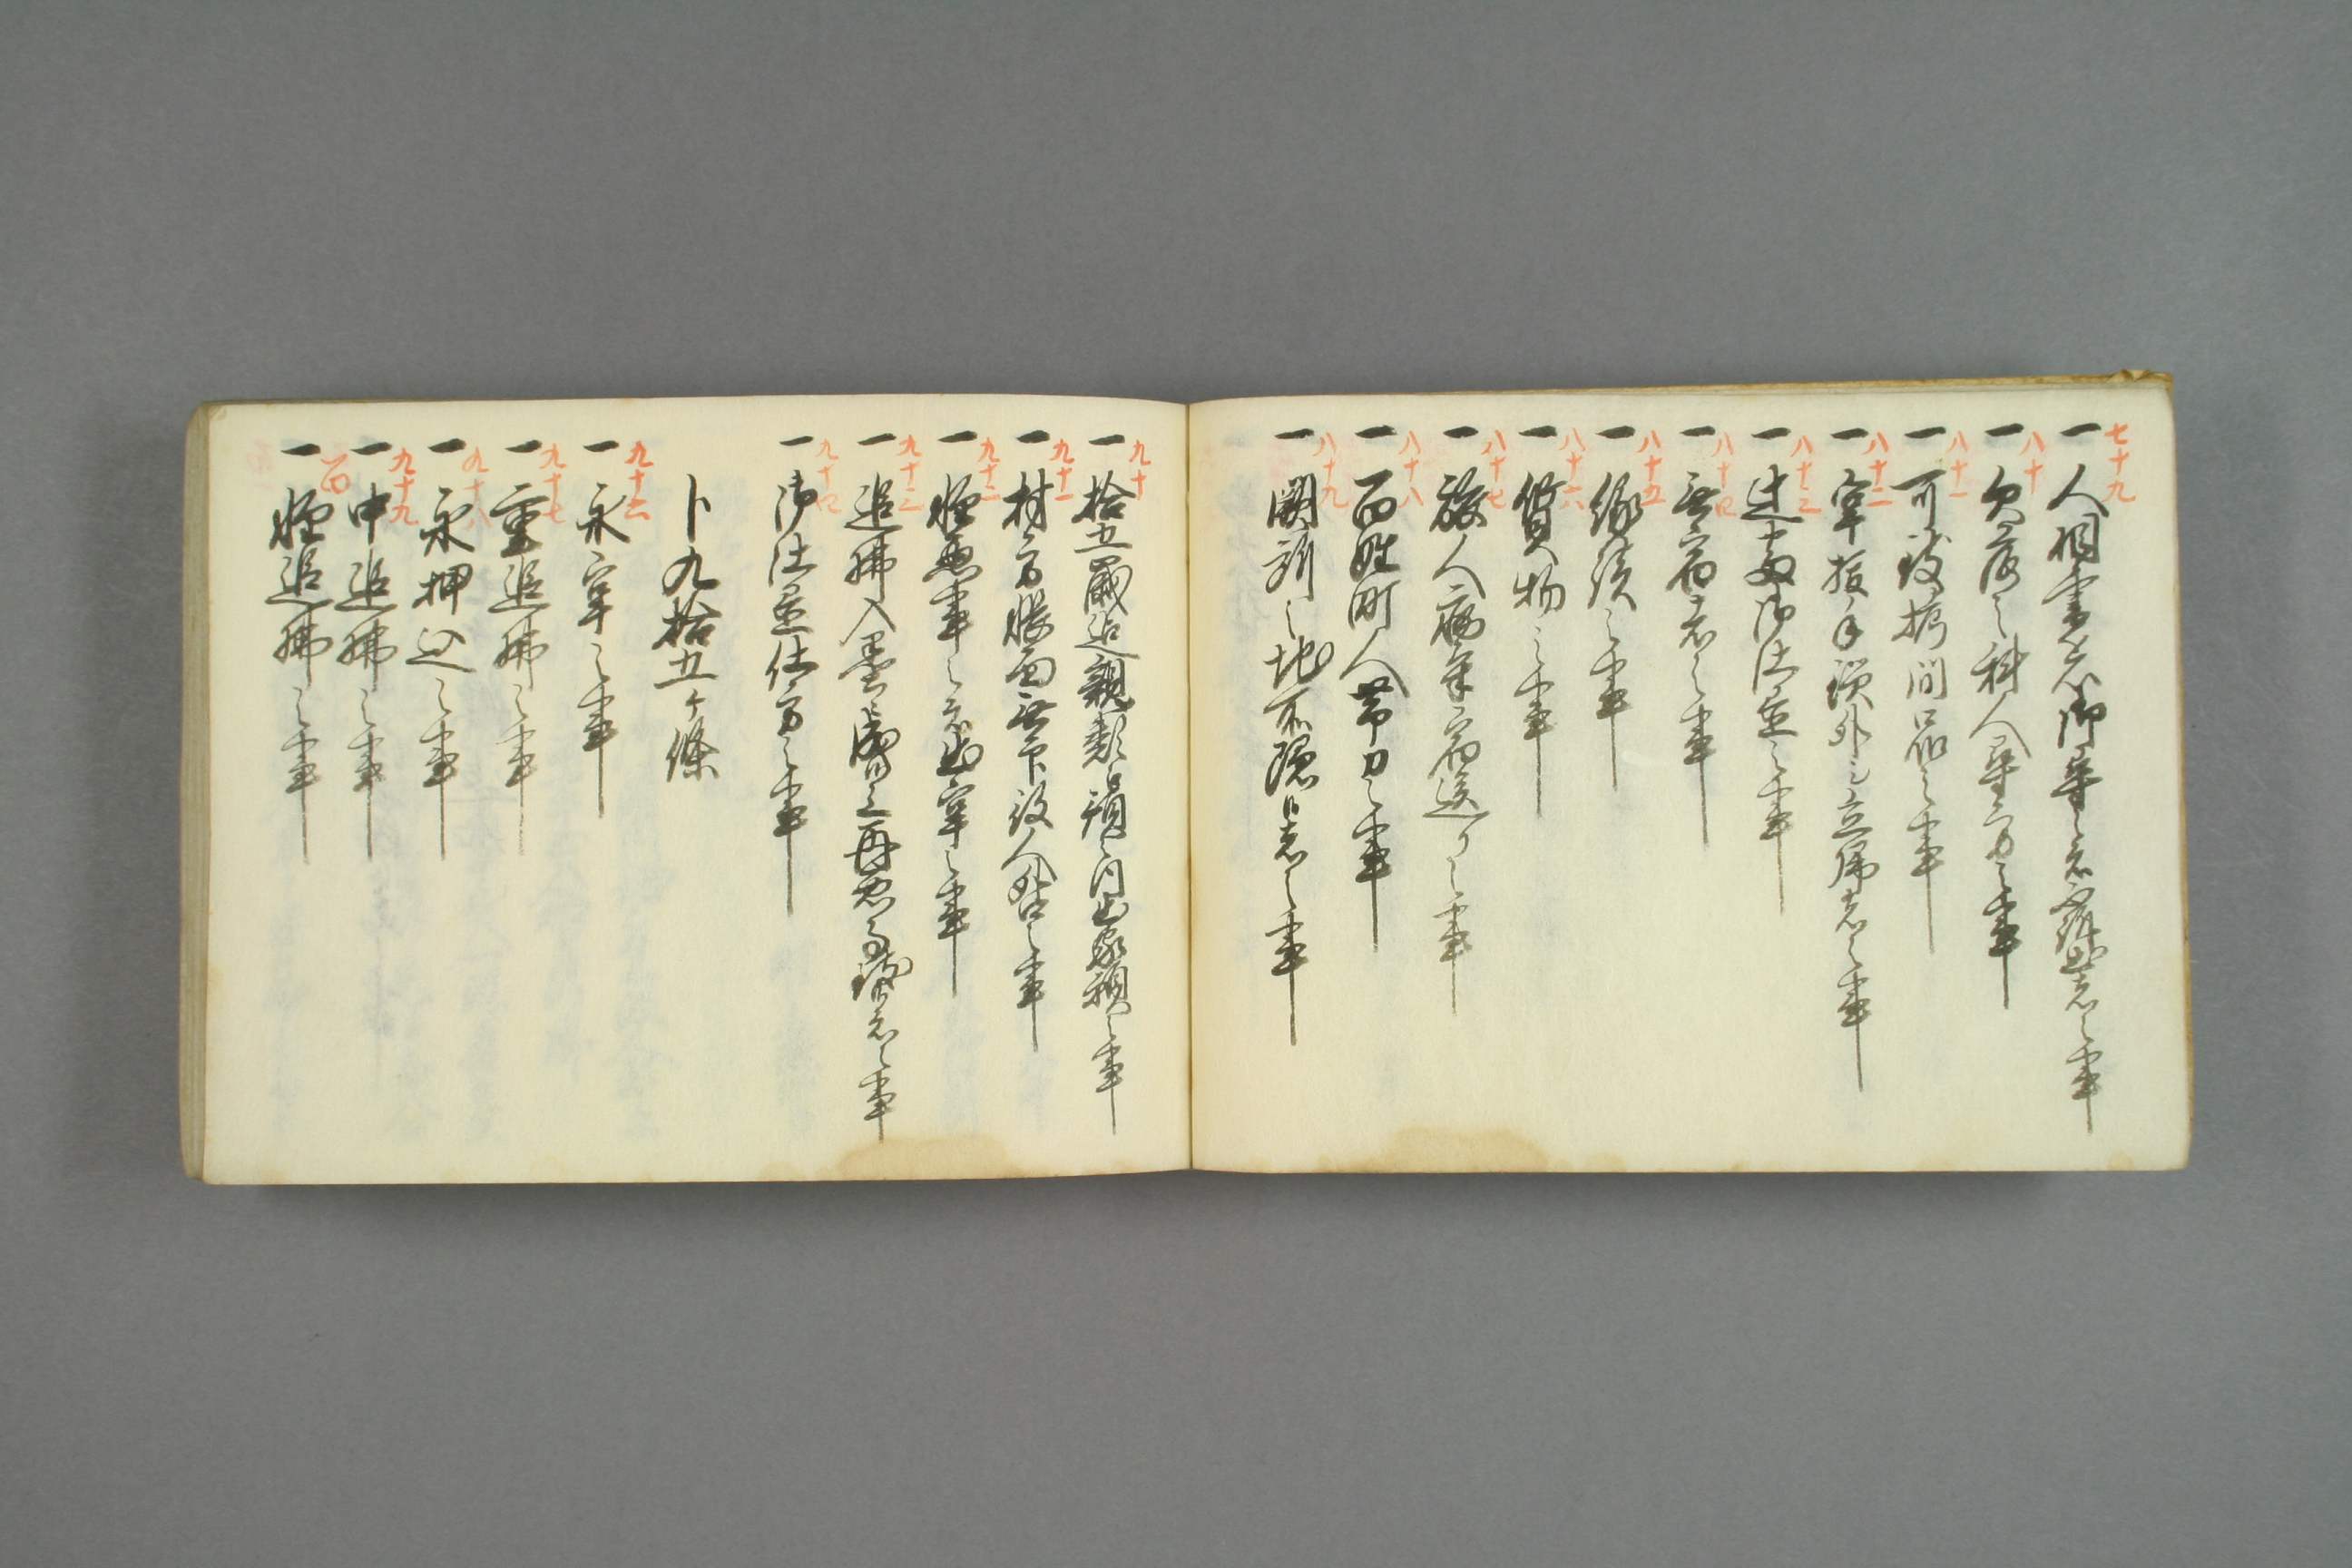 七十九 一 人相書を以御尋之者
八十 一 欠落之科人尋方之事
八十一 一 可致拷問品之事
八十二 一 牢抜手鎖外シ立帰者之事
八十三 一 辻番御仕置之事
八十四 一 無宿者之事
八十五 一 縁談之事
八十六 一 質物之事
八十七 一 旅人病気宿送り之事
八十八 一 百姓町人帯刀之事
八十九 一 闕所之地所隠候者之事
九十 一 拾五歳迄親類預之内出家願之事
九十一 一 村方帳面無印役人咎之事
九十二 一 軽悪事之者出牢之事
九十三 一 追払入墨ニ成候上再悪事致候者之事
九十四 一 御仕置仕方之事
〆九拾五ヶ條
九十六 一 永牢之事
九十七 一 重追払之事
九十八 一 永押込之事
九十九 一 中追払之事
百 一 軽追払之事